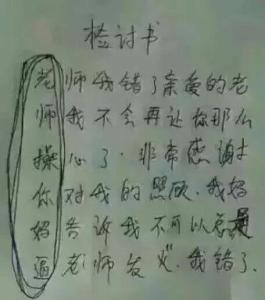 检讨书
老师我错了亲爱的老
师我不会再让你那么
操心了.非常感谢
你对我的照顾.我妈
妈告诉我不可以总是
逼老师发火.我错了.